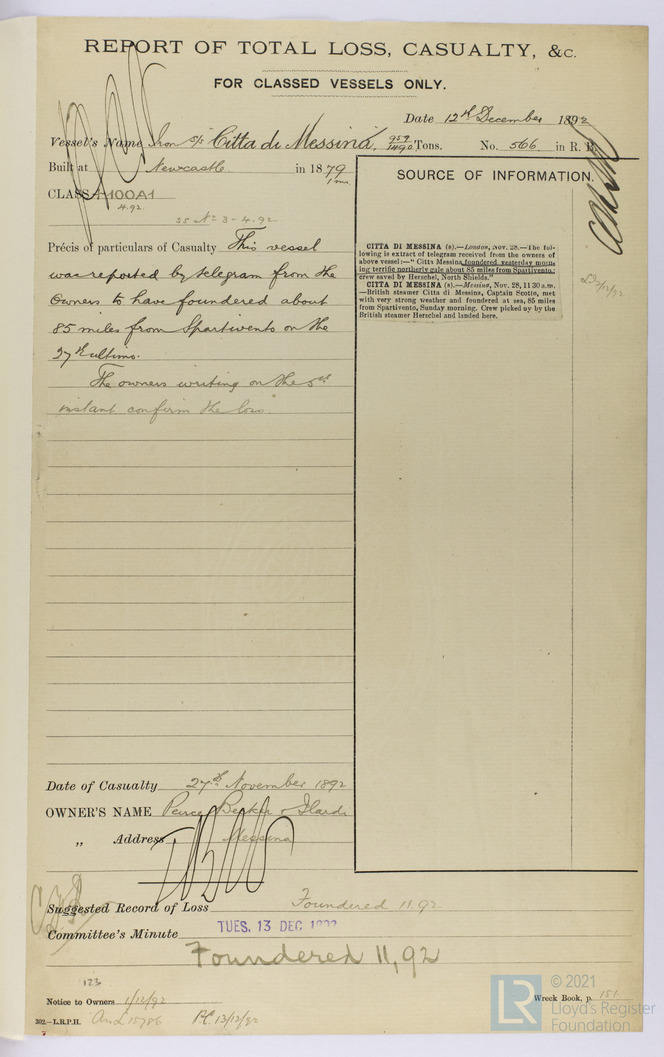 REPORT OF TOTAL LOSS, CASUALTY, &c.
FOR CLASSED VESSELS ONLY.
Date 12th December 1892
Vessel's Name Iron S/S Citta di Messina, 959/1490 Tons. No. 566 in R. B.
Built at Newcastle in 1879
CLASS +100A1
4.92
SS No 3 - 4.92
SOURCE OF INFORMATION.
Précis of particulars of Casualty This vessel
was reported by telegram from the
Owners to have foundered about
85 miles from Spartivento on the
27th ultimo.
The owners writing on the 5th
instant confirm the loss.
CITTA DI MESSINA (s).—London, Nov. 28.—The fol-
lowing is extract of telegram received from the owners of
above vessel:—" Citta Messina foundered yesterday morn-
ing terrific northerly gale about 85 miles from Spartivento;
crew saved by Herschel, North Shields."
CITTA DI MESSINA (s).—Messina, Nov. 28, 11 30 a.m.
—British steamer Citta di Messina, Captain Scotto, met
with very strong weather and foundered at sea, 85 miles
from Spartivento, Sunday morning. Crew picked up by the
British steamer Herschel and landed here.
Date of Casualty 27th November 1892
OWNER'S NAME Peirce, Becker & Ilardi
„ Address Messina
Suggested Record of Loss Foundered 11.92
Committee's Minute TUES. 13 DEC 1892
Foundered 11,92
123
Notice to Owners 1/12/92
Wreck Book, p. 151
302.—L.R.P.H. 13/12/92
LR © 2021
Lloyd's Register
Foundation